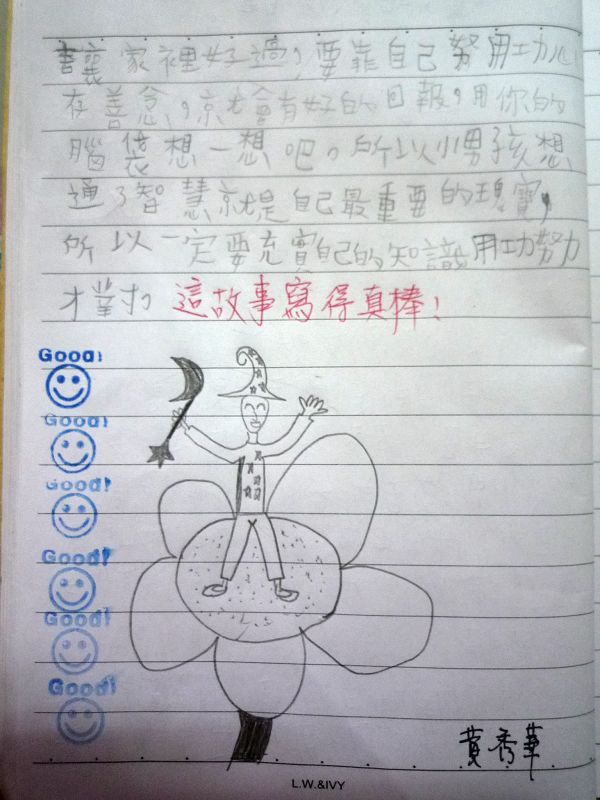 讓家裡好過，要靠自己努用功心
存善念，就會有好的回報，用你的
腦袋想一想吧。所以小男孩想
通了智慧就是自己最重要的瑰寶，
所以一定要充實自己的知識用功努力
才 這故事寫得真棒！
Good!
Good!
Good!
Good!
Good!
Good!
黃秀華
L.W.&IVY